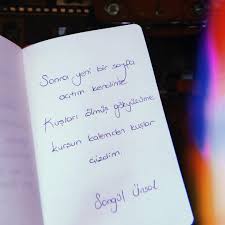 Sonra yeni bir sayfa
açtım kendime
Kuşları ölmüş gökyüzüme
kurşun kalemden kuşlar
çizdim
Songül Ünsal